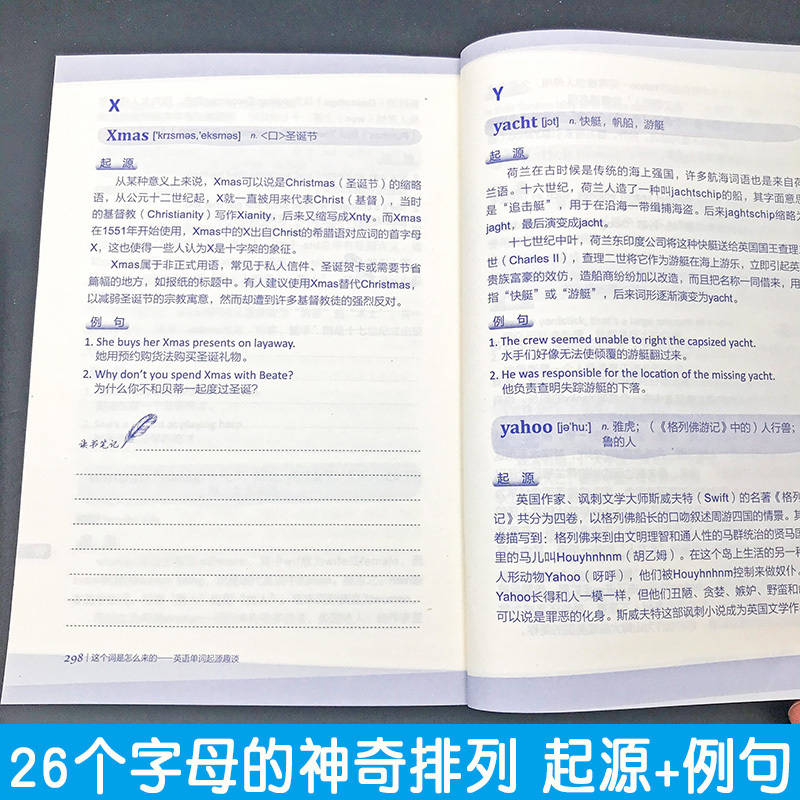 X
Xmas ['krɪsməs,'eksməs] n. <口>圣诞节
起 源
从某种意义上来说，Xmas可以说是Christmas（圣诞节）的缩略
语，从公元十二世纪起，X就一直被用来代表Christ（基督），当时
的基督教（Christianity）写作Xianity，后来又缩写成Xnty。而Xmas
在1551年开始使用，Xmas中的X出自Christ的希腊语对应词的首字母
X，这也使得一些人认为X是十字架的象征。
Xmas属于非正式用语，常见于私人信件、圣诞贺卡或需要节省
篇幅的地方，如报纸的标题中。有人建议使用Xmas替代Christmas，
以减弱圣诞节的宗教寓意，然而却遭到许多基督教徒的强烈反对。
例 句
1. She buys her Xmas presents on layaway.
她用预约购货法购买圣诞礼物。
2. Why don't you spend Xmas with Beate?
为什么你不和贝蒂一起度过圣诞?
读书笔记
298 | 这个词是怎么来的——英语单词起源趣谈
Y
yacht [jɔt] n. 快艇，帆船，游艇
起 源
荷兰在古时候是传统的海上强国，许多航海词语也是来自荷
兰语。十六世纪，荷兰人造了一种叫jachtschip的船，其字面意思
是“追击艇”，用于在沿海一带缉捕海盗。后来jaghtschip缩略为
jaght，最后演变成jacht。
十七世纪中叶，荷兰东印度公司将这种快艇送给英国国王查理
世（Charles II），查理二世将它作为游艇在海上游乐，立即引起英
贵族富豪的效仿，造船商纷纷加以改造，而且把名称一同借来，用
指“快艇”或“游艇”，后来词形逐渐演变为yacht。
例 句
1. The crew seemed unable to right the capsized yacht.
水手们好像无法使倾覆的游艇翻过来。
2. He was responsible for the location of the missing yacht.
他负责查明失踪游艇的下落。
yahoo [jə'hu:] n. 雅虎；（《格列佛游记》中的）人行兽；
鲁的人
起 源
英国作家、讽刺文学大师斯威夫特（Swift）的名著《格列
记》共分为四卷，以格列佛船长的口吻叙述周游四国的情景。其
卷描写到：格列佛来到由文明理智和通人性的马群统治的贤马国
里的马儿叫Houyhnhnm（胡乙姆）。在这个岛上生活的另一种
人形动物Yahoo（呀呼），他们被Houyhnhnm控制来做奴仆。
Yahoo长得和人一模一样，但他们丑陋、贪婪、嫉妒、野蛮和
可以说是罪恶的化身。斯威夫特这部讽刺小说成为英国文学作
26个字母的神奇排列 起源+例句